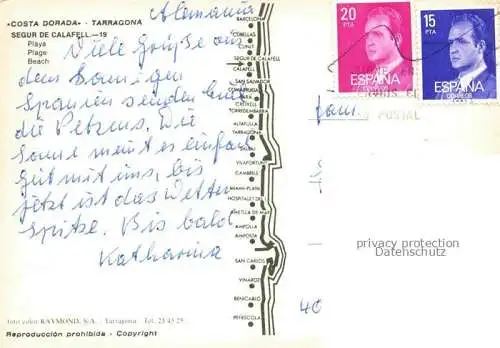 «COSTA DORADA» - TARRAGONA
SEGUR DE CALAFELL.—19
Playa
Plage
Beach
Alemania
Viele Grüße aus
dem Sonnigen
Spanien senden Euch
die Petzens. Die
Sonne meint es einfach
gut mit uns, bis
jetzt ist das Wetter
spitze. Bis bald
Katharina
BARCELONA
CUNIT
SEGUR DE CALAFELL
SAN SALVADOR
TORREDEMBARRA
ALTAFULLA
TARRAGONA
SALOU
VILAFORTUNY
CAMBRILS
MIAMI-PLAYA
HOSPITALET DE
AMETLLA DE MAR
AMPOLLA
AMPOSTA
SAN CARLOS
VINAROZ
BENICARLO
PEÑISCOLA
foto color RAYMOND, S/A. - Tarragona - Tel. 23 45 25
Reproducción prohibida - Copyright
20
PTA
ESPAÑA
CORREOS
15
PTA
ESPAÑA
CORREOS
POSTAL
Fam.
privacy protection
Datenschutz
40